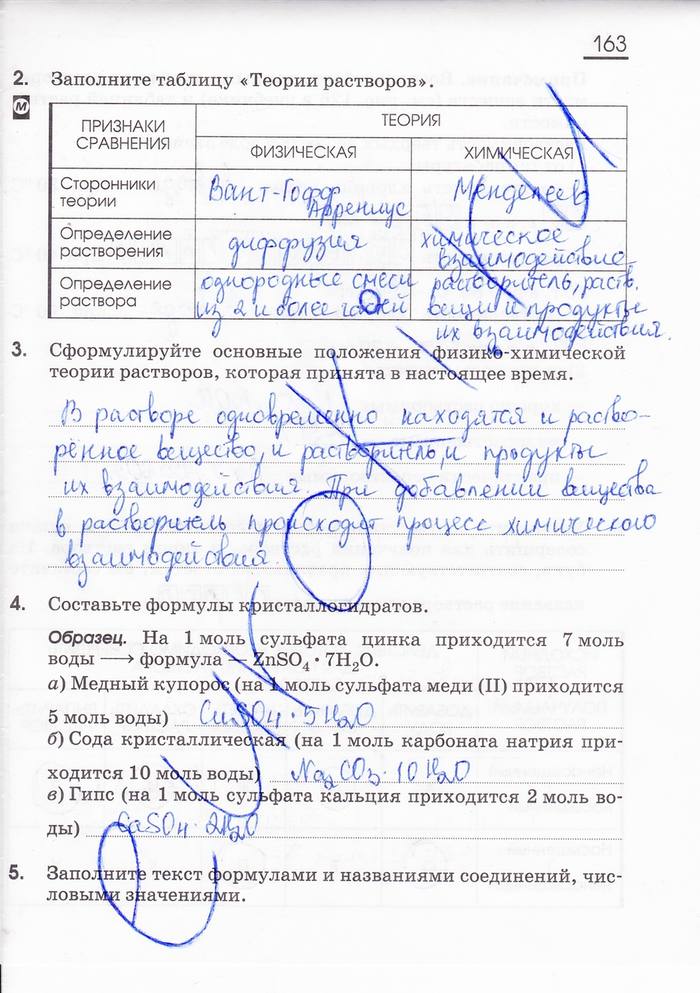 163
2. Заполните таблицу «Теории растворов».
М
ПРИЗНАКИ СРАВНЕНИЯ
ТЕОРИЯ
ФИЗИЧЕСКАЯ
ХИМИЧЕСКАЯ
Сторонники теории
Вант-Гофф
Аррениус
Менделеев
Определение растворения
диффузия
химическое
взаимодействие
Определение раствора
однородные смеси
из 2 и более частей
растворитель, раств.
вещ. и продукты
их взаимодействия.
3. Сформулируйте основные положения физико-химической
теории растворов, которая принята в настоящее время.
В растворе одновременно находятся и раство-
рённое вещество, и растворитель, и продукты
их взаимодействия. При добавлении вещества
в растворитель происходит процесс химического
взаимодействия.
4. Составьте формулы кристаллогидратов.
Образец. На 1 моль сульфата цинка приходится 7 моль
воды ⟶ формула — ZnSO₄ · 7H₂O.
а) Медный купорос (на 1 моль сульфата меди (II) приходится
5 моль воды) CuSO₄ · 5H₂O
б) Сода кристаллическая (на 1 моль карбоната натрия при-
ходится 10 моль воды) Na₂CO₃ · 10H₂O
в) Гипс (на 1 моль сульфата кальция приходится 2 моль во-
ды) CaSO₄ · 2H₂O
5. Заполните текст формулами и названиями соединений, чис-
ловыми значениями.